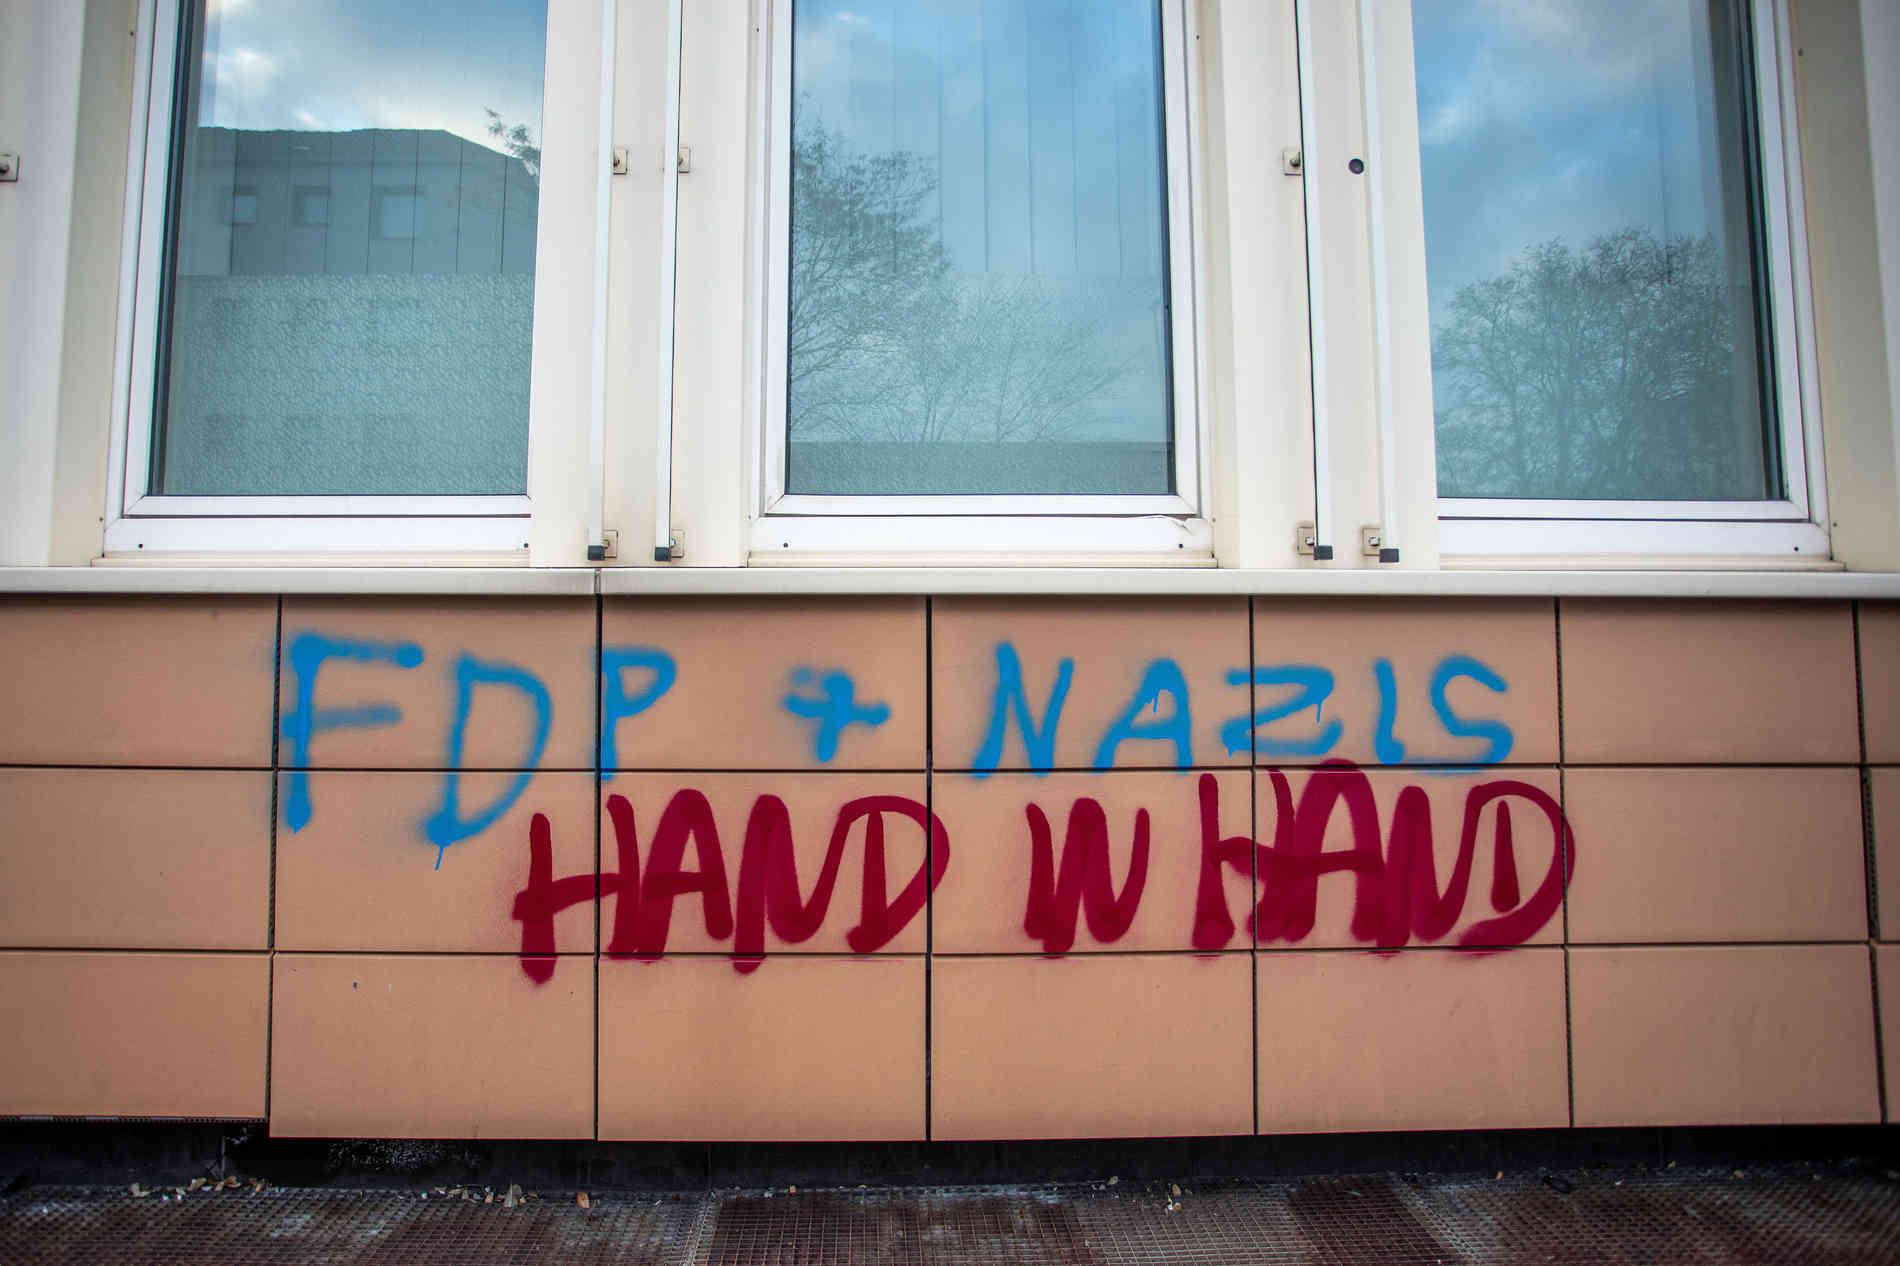 FDP + NAZIS
HAND IN HAND